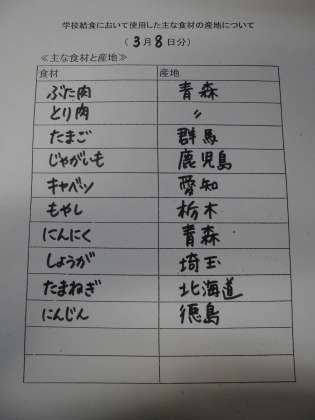 学校給食において使用した主な食材の産地について
（3月8日分）
≪主な食材と産地≫
食材 産地
ぶた肉 青森
とり肉 〃
たまご 群馬
じゃがいも 鹿児島
キャベツ 愛知
もやし 栃木
にんにく 青森
しょうが 埼玉
たまねぎ 北海道
にんじん 徳島